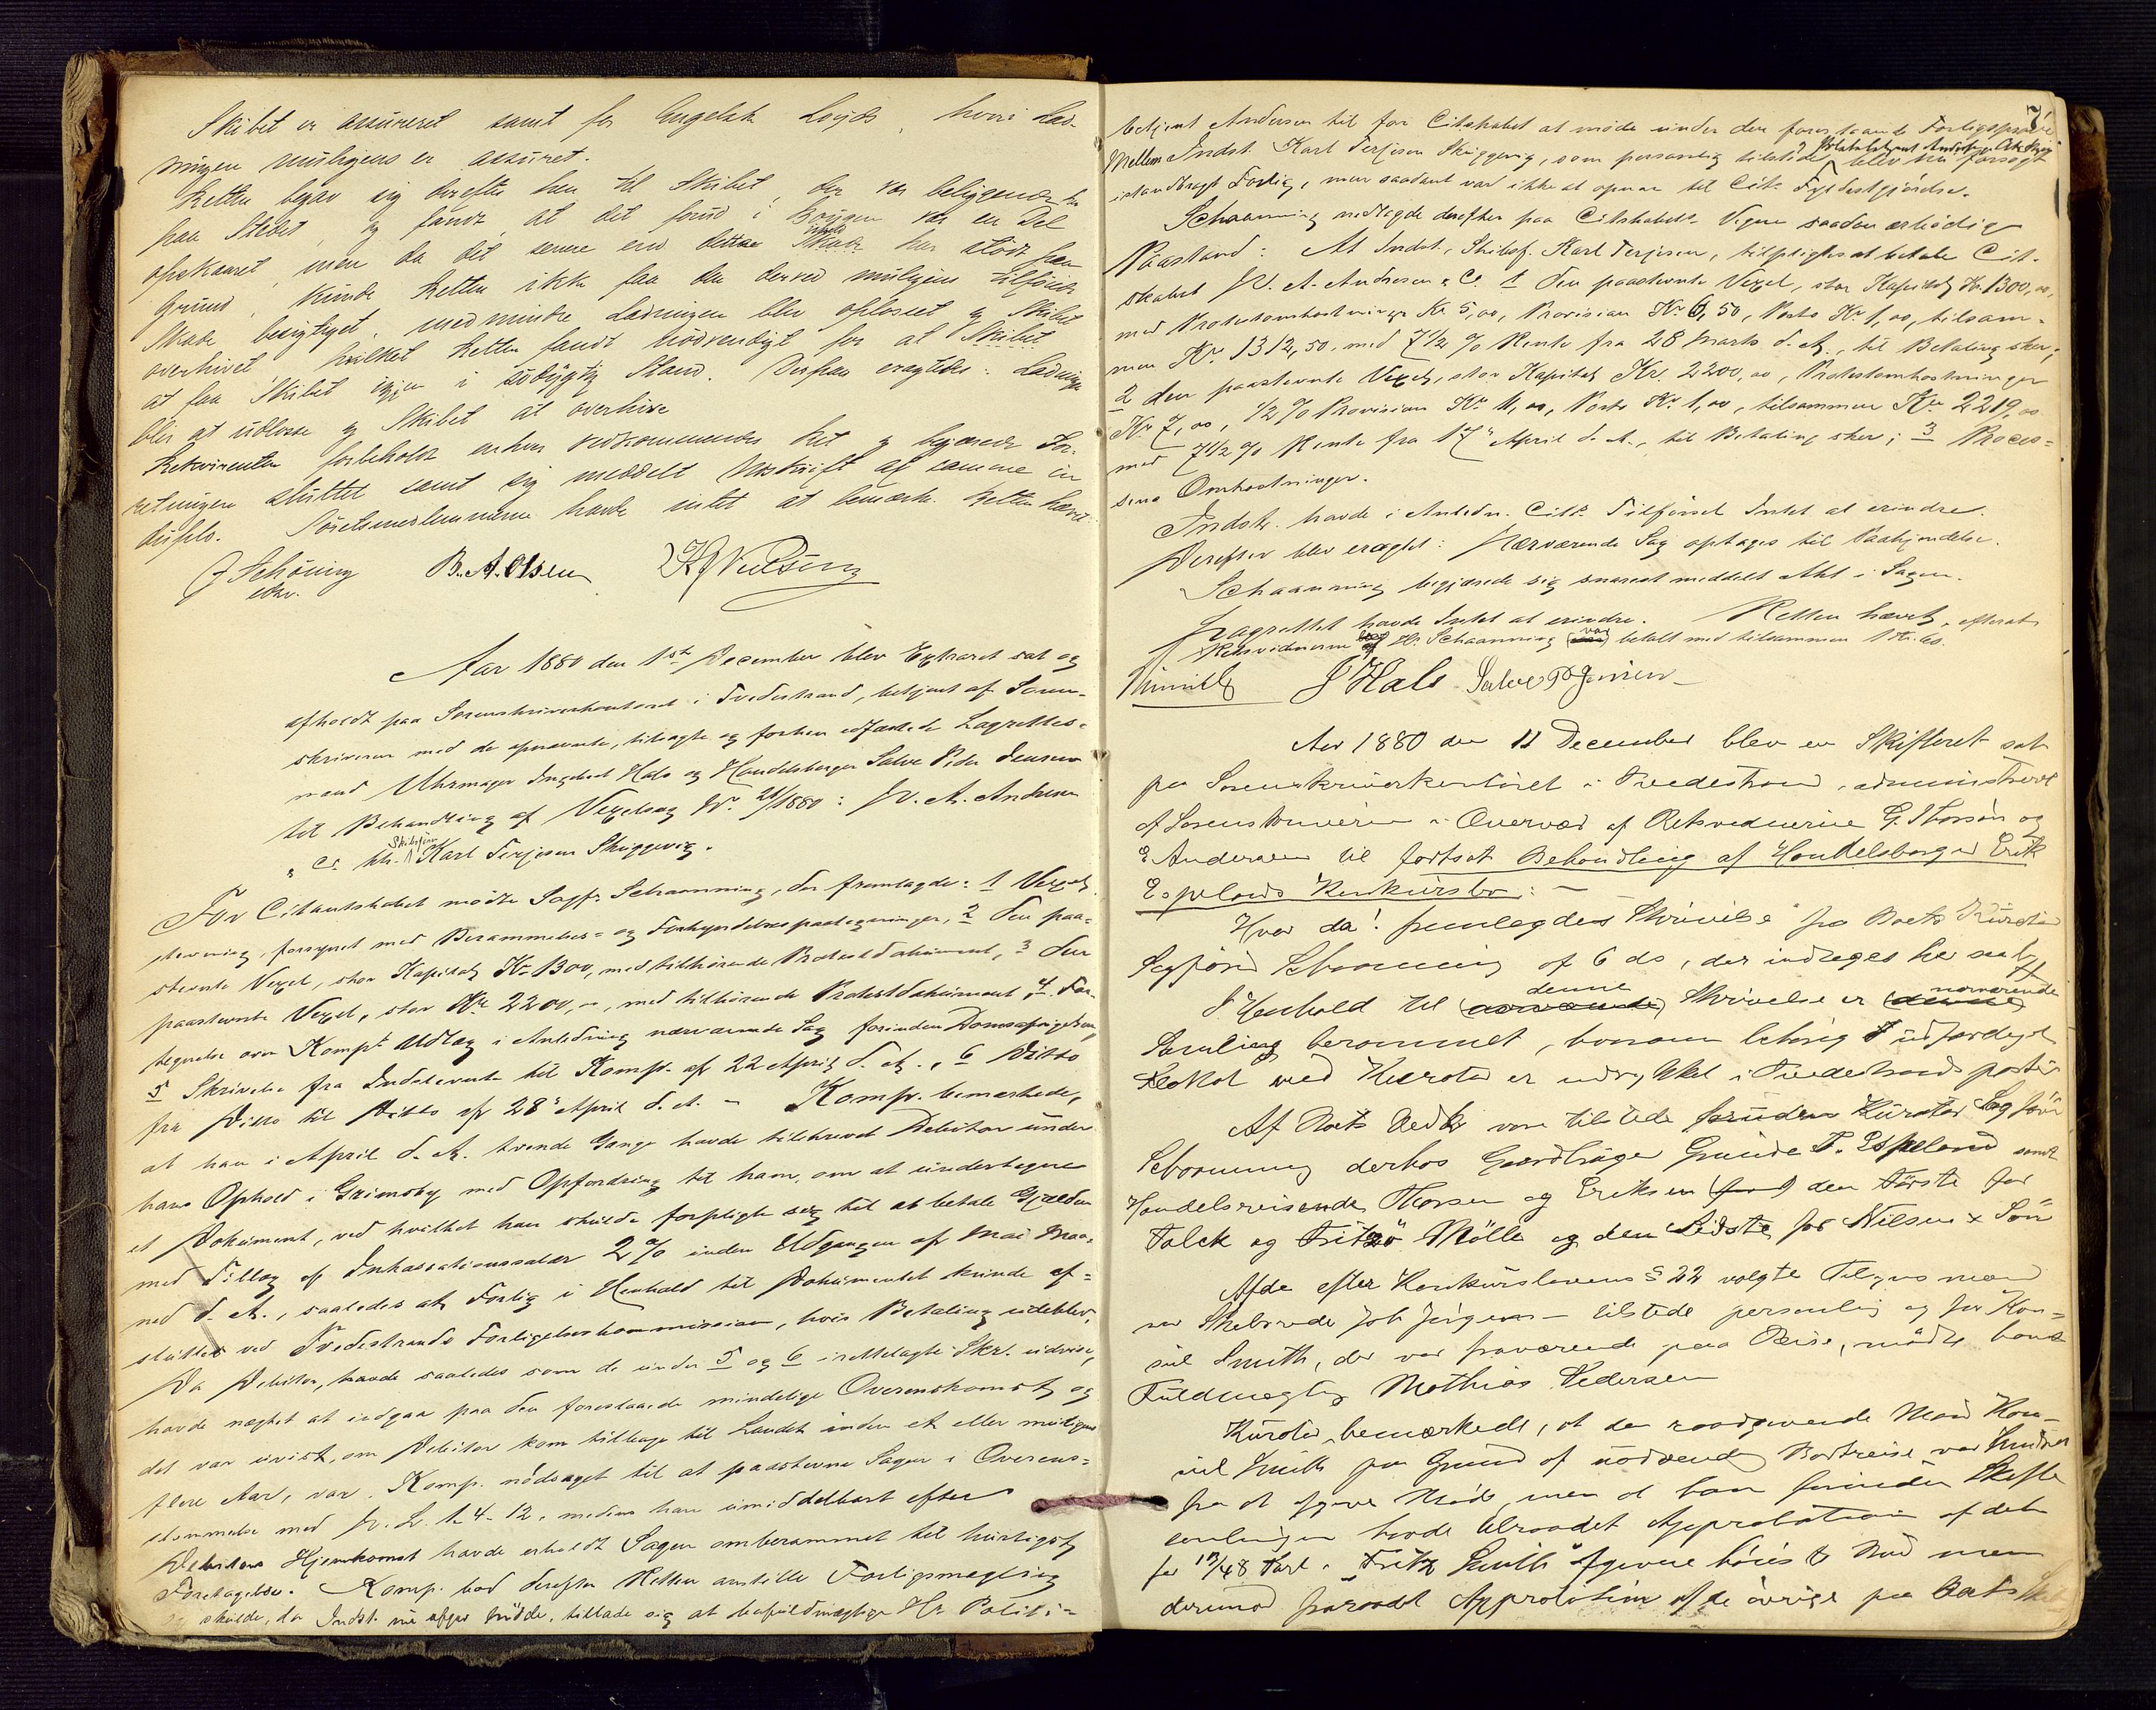 Skibet er assureret samt for Engelsk Loyds, hvori Lad-
ningen muligens er assuret.
Retten begav sig derefter hen til Skibet der var beliggende her
paa Stedet, og fandt at det forud i Bougen var en Del
opskaaret, men da det senere end denne Skade har stödt paa
Grund, kunde Retten ikke faa den derved muligens tilföiede
Skade besigtiget, medmindre Ladningen blev oplosset og Skibet
overhivet hvilket Retten fandt nödvendigt for at Skibet
at faa Skibet igjen i södygtig Stand. Derpaa eragtedes: Ladningen
bliv at udlosse og Skibet at overhive
Rekvirenten forbeholdt enhver vedkommendes Ret og begjærede For-
retningen sluttet samt sig meddelt Udskrift af samme in
duplo. Söretsmedlemmerne havde intet at bemærke. Retten hævet.
J Schöning B. A. Olsen
const.
Aar 1880 den 1ste December blev Extraret sat og
afholdt paa Sorenskriverkontoret i Tvedestrand, betjent af Soren-
skriveren med de opnævnte, tiltagte og forhen edfæstede Lagrettes-
mænd Uhrmager Ingebret Hals og Handelsborger Salve Peder Jensen
til Behandling af Vexelsag No. 21/1880: N. A. Andresen
& Co. ctr. Skibsfører Karl Terjesen Skiggevig.
For Citantskabet mødte Sagf. Schaanning, der fremlagde: 1 Vexel-
stevning, forsynet med Berammelses- og Forkyndelsespaategninger, 2 den paa-
stevnte Vexel, stor Kapital Kr. 1300, med tilhörende Protestdokument, 3 den
paastevnte Vexel, stor Kr. 2200,-, med tilhörende Protestdokument, 4 For-
tegnelse over Komps Udlæg i Anledning nærværende Sag forinden Domsafsigelsen,
5 Skrivelse fra Indstevnte til Komp. af 22 April d. A., 6 Ditto
fra Ditto til Ditto af 28de April d. A. – Komp. bemærkede,
at han i April d. A. tvende Gange havde tilskrevet Debitor under
hans Ophold i Grimsby med Opfordring til ham, om at undertegne
et Dokument, ved hvilket han skulde forpligte sig til at betale Gjælden
med Tillæg af Inkassationssalær 2 % inden Udgangen af Mai Maa-
ned d. A., saaledes at Forlig i Henhold til Dokumentet kunde af-
sluttes ved Tvedestrands Forligelseskommission, hvis Betaling udeblev.
Da Debitor, havde saaledes som de under 5 og 6 irettelagte Skr. udvise,
havde nægtet at indgaa paa den foreslaaede mindelige Overenskomst, og
det var uvist, om Debitor kom tilbage til Landet inden et eller muligens
flere Aar, var Komp. nödsaget til at paastevne Sagen i Overens-
stemmelse med N. L. 1-4-12, medens han umiddelbart efter
Debitors Hjemkomst havde erholdt Sagen omberammet til hurtigst
Foretagelse. Komp. bad derefter Retten anstille Forligsmægling
og skulde, da Indst. nu afgav Mödde, tillade sig at befuldmægtige Hr. Politi-
7
betjent Andersen til for Citskabet at møde under den forestaaende Forligsprøve
Politibetjent Andersen Citskabets
Mellem Indst. Karl Terjesen Skiggevig, som personlig tilstede, blev nu forsøgt
istandbragt Forlig, men saadant var ikke at opnaa til Cits. Fyldestgjørelse.
Schaanning nedlagde derefter paa Citskabets Vegne saadan ærbødig
Paastand: At Indst., Skibsf. Karl Terjesen, tilpligtes at betale Cit-
skabet N. A. Andresen & Co. 1 den paastevnte Vexel, stor Kapital Kr. 1300,00,
med Protestomkostninger Kr 5,00, Provision Kr. 6,50, Porto Kr. 1,00, tilsam-
men Kr. 1312,50, med 7 1/2 % Rente fra 28 Marts d. A., til Betaling sker;
2 den paastevnte Vexel, stor Kapital Kr. 2200,00, Protestomkostninger
Kr. 7,00, 1/2 % Provision Kr. 11,00, Porto Kr. 1,00, tilsammen Kr. 2219,00
med 7 1/2 % Rente fra 17de April d. A., til Betaling sker; 3 Proces-
sens Omkostninger.
Indst. havde i Anledn. Cits. Tilførsel Intet at erindre.
Derefter blev eragtet: Nærværende Sag optages til Paakjendelse.
Schaanning begjærede sig snarest meddelt Akt i Sagen.
Lagrettet havde Intet at erindre. Retten hævet, efterat
Retsvidnerne af Hr. Schaanning var betalt med tilsammen 1 Kr. 60.
J Hals Salve P. Jensen
Aar 1880 den 11 December blev en Skifteret sat
paa Sorenskriverkontoret i Tvedestrand, administreret
af Sorenskriveren i Overvær af Retsvidnerne G. Thorsön og
E Andersen til fortsat Behandling af Handelsborger Erik
Espelands Konkursbo: –
Hvor da! fremlagdes Skrivelse fra Boets Kurator
Sagförer Schaanning af 6 ds, der indtages her saal.
I Henhold til denne Skrivelse er nærværende
Samling berammet, hvorom behörig udfærdiget
Plakat ved Kurator er udvexlet i Tvedestrands
Af Boets Vedk. vare tilstede foruden Kurator Sagförer
Schaanning derhos Gaardbruger Gunde T. Espeland samt
Handelsreisende Thorsen og Eriksen den förste for
Falck og Fritzö Mölle og den Sidste for Nilsen & Sön
Af de efter Konkurslovens § 22 valgte Tilsynsmænd
var Skibsrede Job Jörgens– tilstede personlig og for Kon-
sul Smith, der var fraværende paa Reise, mödte hans
Fuldmægtig Mathias Pedersen
Kurator bemærkede, at den raadgivende Mand Kon-
sul Smith paa Grund af nödvendig Bortreise var hindret
fra at afgive Möde, men at han forinden Skifte
samlingen havde tilraadet Approbation af det
for 17/48 Part i "Fritz Smith" afgivne höieste Bud men
derimod fraraadet Approbation af de övrige paa Boets